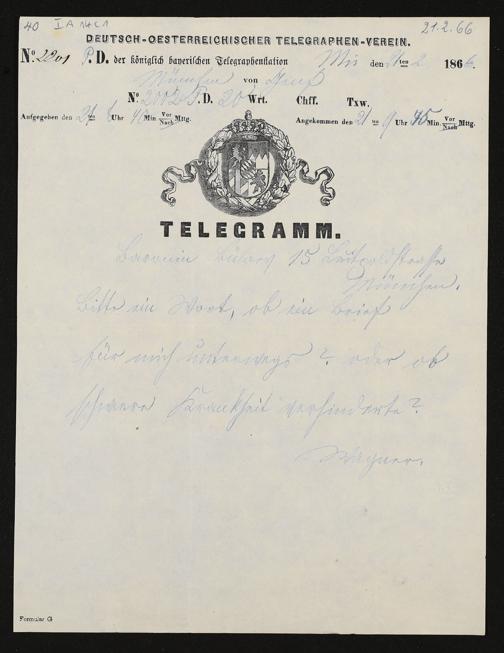 40 I A 14 c 1 21.2.66
DEUTSCH-OESTERREICHISCHER TELEGRAPHEN-VEREIN.
No. 2201 P.D. der königlich bayerischen Telegraphenstation den 21ten 2 1866.
München von Genf
No. P.D. 20 Wrt. Chff. Txw.
Aufgegeben den 21ten Uhr Min Vor/Nach Mttg. Angekommen den 21ten 9 Uhr 45 Min. Vor/Nach Mttg.
TELEGRAMM.
Baronin Bülow 15 Luitpoldstrasse
München.
Bitte ein Wort, ob ein Brief
für mich unterwegs? oder ob
schwere Krankheit verhinderte?
Wagner.
Formular G